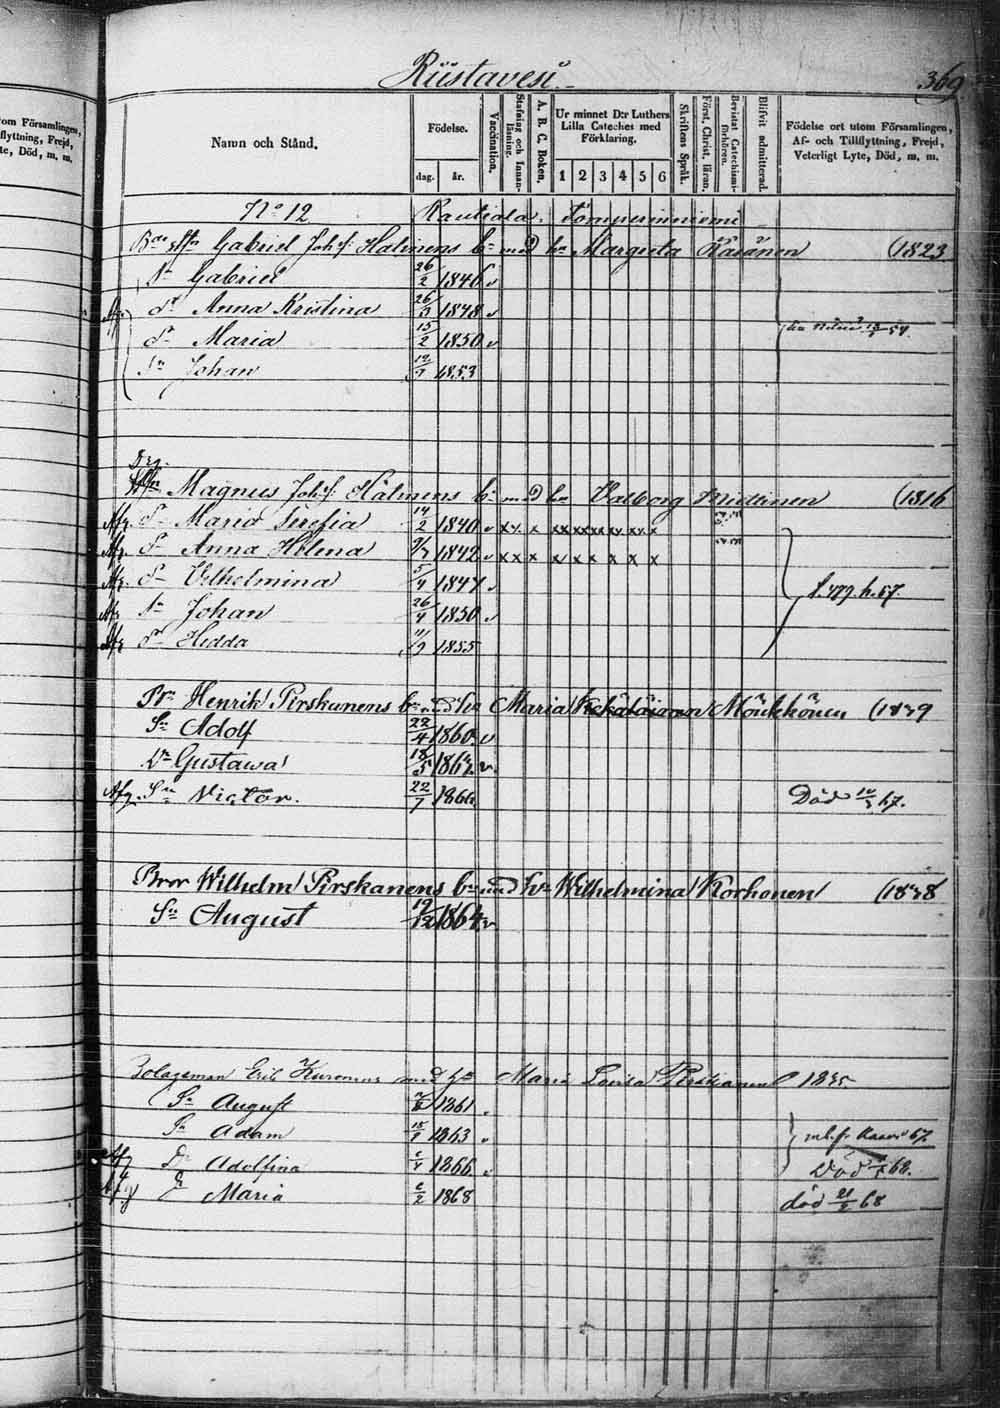 om Församlingen,
flyttning, Frejd,
te, Död, m. m.
Riistavesi
369
Namn och Stånd.
Födelse.
dag. år.
Vaccination.
Stafning och Innan-läsning.
A. B. C. Boken.
Ur minnet D:r Luthers Lilla Cateches med Förklaring.
1 2 3 4 5 6
Skriftens Språk.
Först. Christ. läran.
Bevistat Catechismi-förhören.
Blifvit admitterad.
Födelse ort utom Församlingen, Af- och Tillflyttning, Frejd, Veterligt Lyte, Död, m. m.
No 12 Rautiala. Tömperinniemi
Gabriel Joh:s: Halmens bn med hu Margreta Räsänen (1823
Sn Gabriel 26/2 1846 v
dr Anna Kristina 1848 v
dr Maria 15/2 1850 v
Sn Johan 1853
Magnus Joh:s: Halmens bn med hu Valborg Miettinen (1816
Afg. dr Maria Serefia 14/2 1840 v x x x x x x x x x
Afg. dr Anna Helena 9/7 1842 v x x x x x x x x x
Afg. dr Vilhelmina 5/4 1847 v
Afg. Sn Johan 26/4 1850 v
Afg. dr Hedda 11/9 1855
f. 479. h. 57.
Henrik Pirskanens bn med hu Maria Mönkkönen (1839
Sn Adolf 22/4 1860 v
Dr Gustawa 18/5 1862 v
Afg. Sn Victor. 22/7 1866 Död 67.
Bror Wilhelm Pirskanens bn med hu Wilhelmina Korhonen (1838
Sn August 19/12 1864 v
Bolagsman Erik Kuronens med hu Maria Lovisa Pirskanen 1835
Sn August 1861
Sn Adam 1863 v 67.
Dr Adolfina 1866 v Död 68.
Maria 1868 död 21/2 68